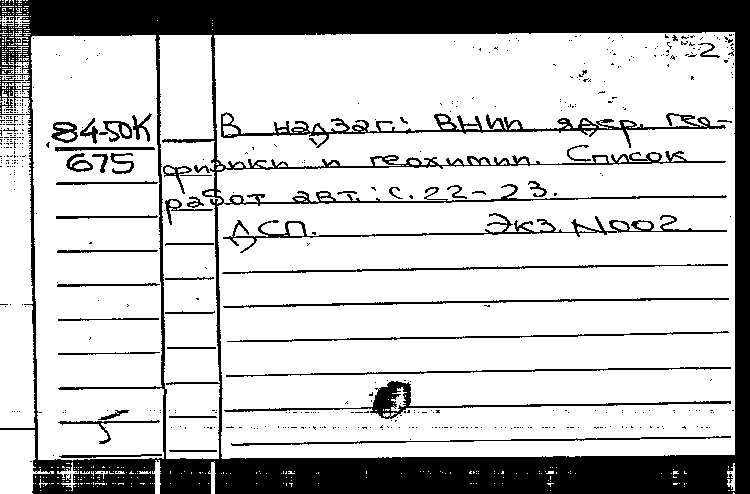 2
84-50К В надзаг.: ВНИИ ядер. гео-
675 физики и геохимии. Список
работ авт.: с. 22-23.
ДСП. Экз. N002.
5